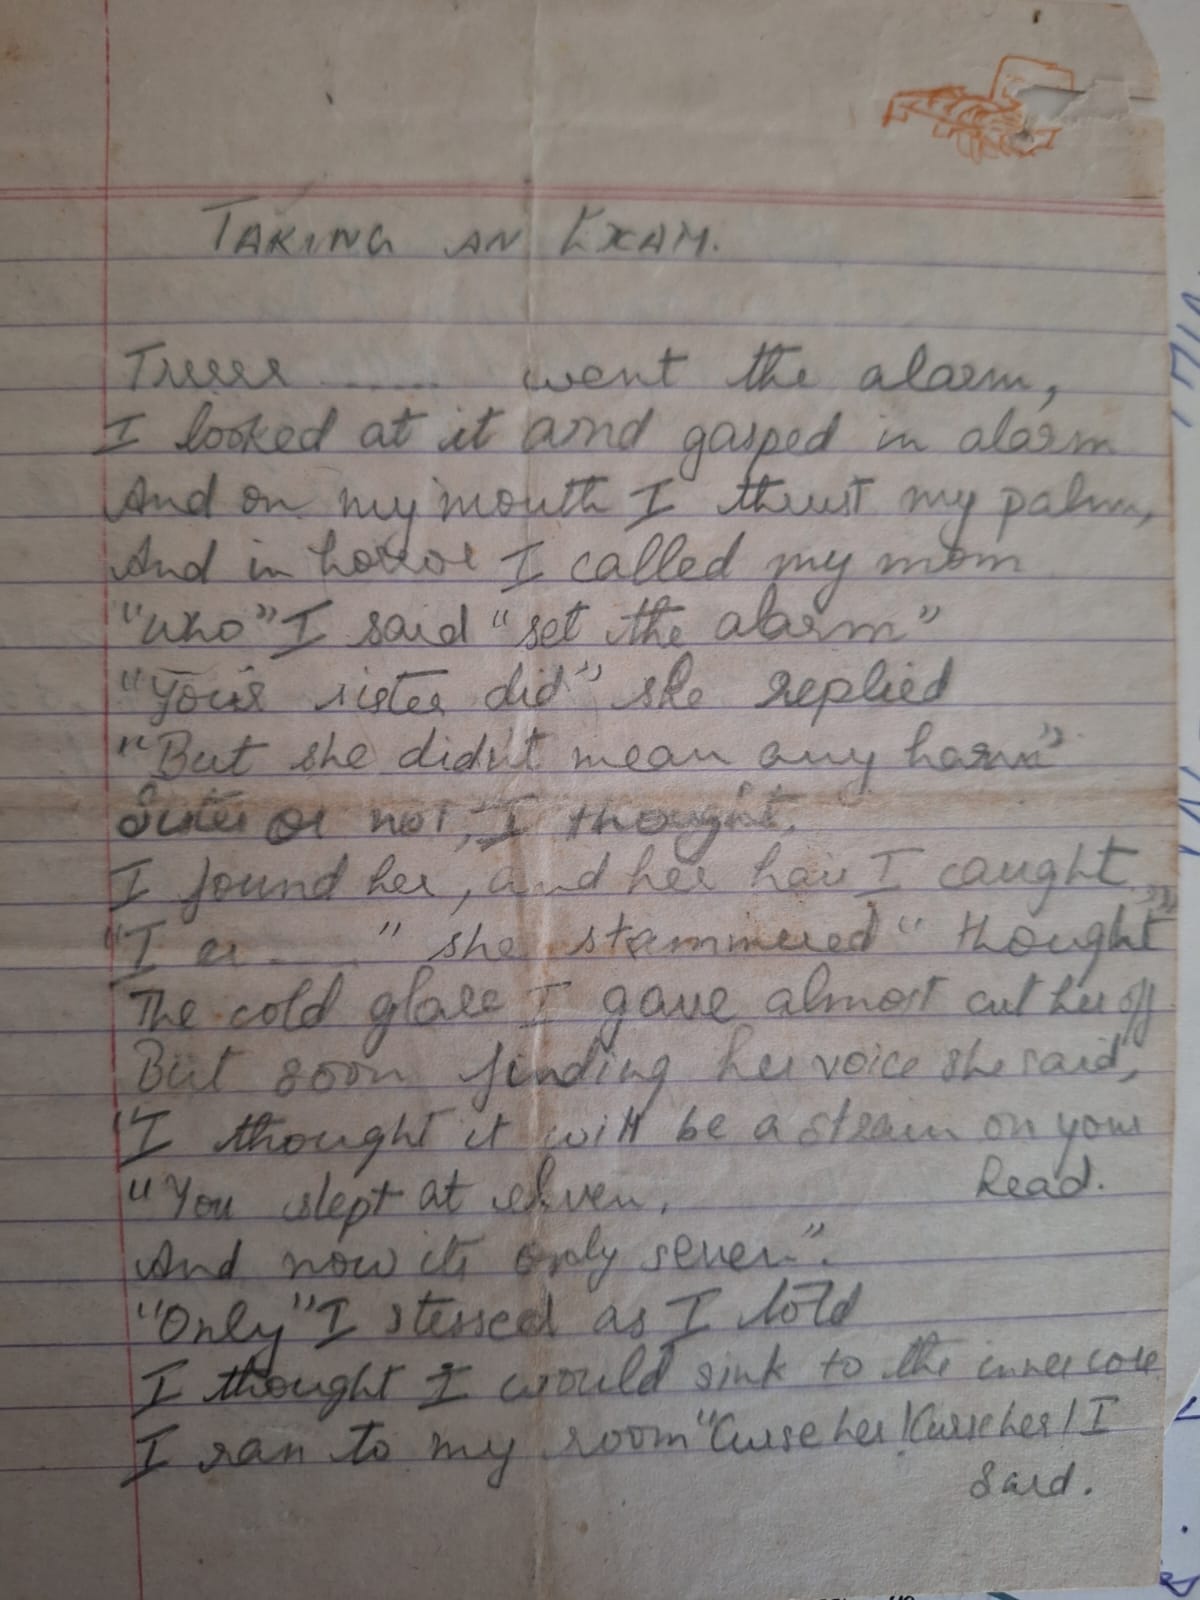 TAKING AN EXAM.
Trrrr ....... went the alarm,
I looked at it and gasped in alarm
And on my mouth I thrust my palm,
And in horror I called my mom
"Who" I said "set the alarm"
"Your sister did" she replied
"But she didn't mean any harm"
Sister or not, I thought.
I found her, and her hair I caught
"I er ....... " she stammered "thought"
The cold glare I gave almost cut her off
But soon finding her voice she said,
"I thought it will be a strain on your
head.
"You slept at eleven,
And now its only seven".
"Only" I stessed as I told
I thought I would sink to the inner core
I ran to my room "Curse her! Curse her! I
said.